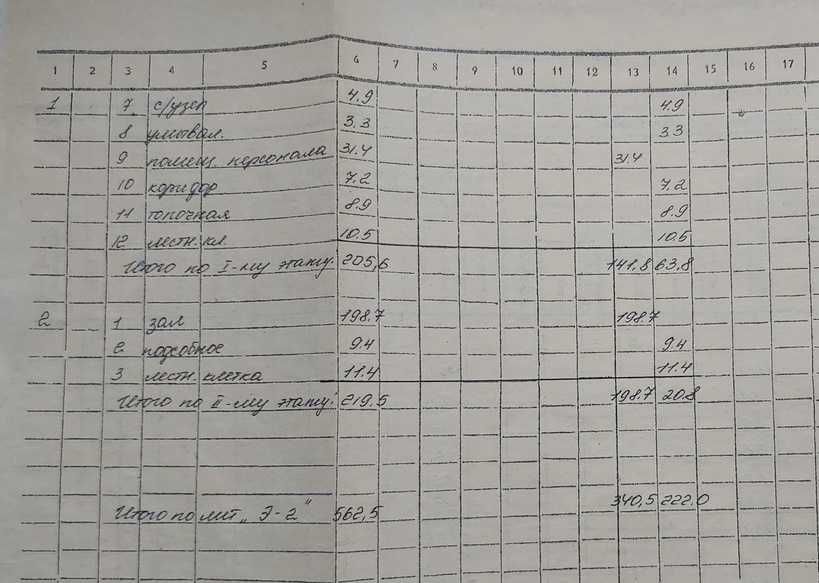 1 2 3 4 5 6 7 8 9 10 11 12 13 14 15 16 17
1 7 с/узел 4.9 4.9
8 умывал. 3.3 3.3
9 помещ. персонала 31.4 31.4
10 коридор 7.2 7.2
11 топочная 8.9 8.9
12 лестн. кл 10.5 10.5
Итого по I-му этажу: 205,6 141,8 63,8
2 1 зал 198.7 198.7
2 подсобное 9.4 9.4
3 лестн. клетка 11.4 11.4
Итого по II-му этажу: 219.5 198.7 20.8
Итого по лит „Э-2" 562,5 340,5 222.0